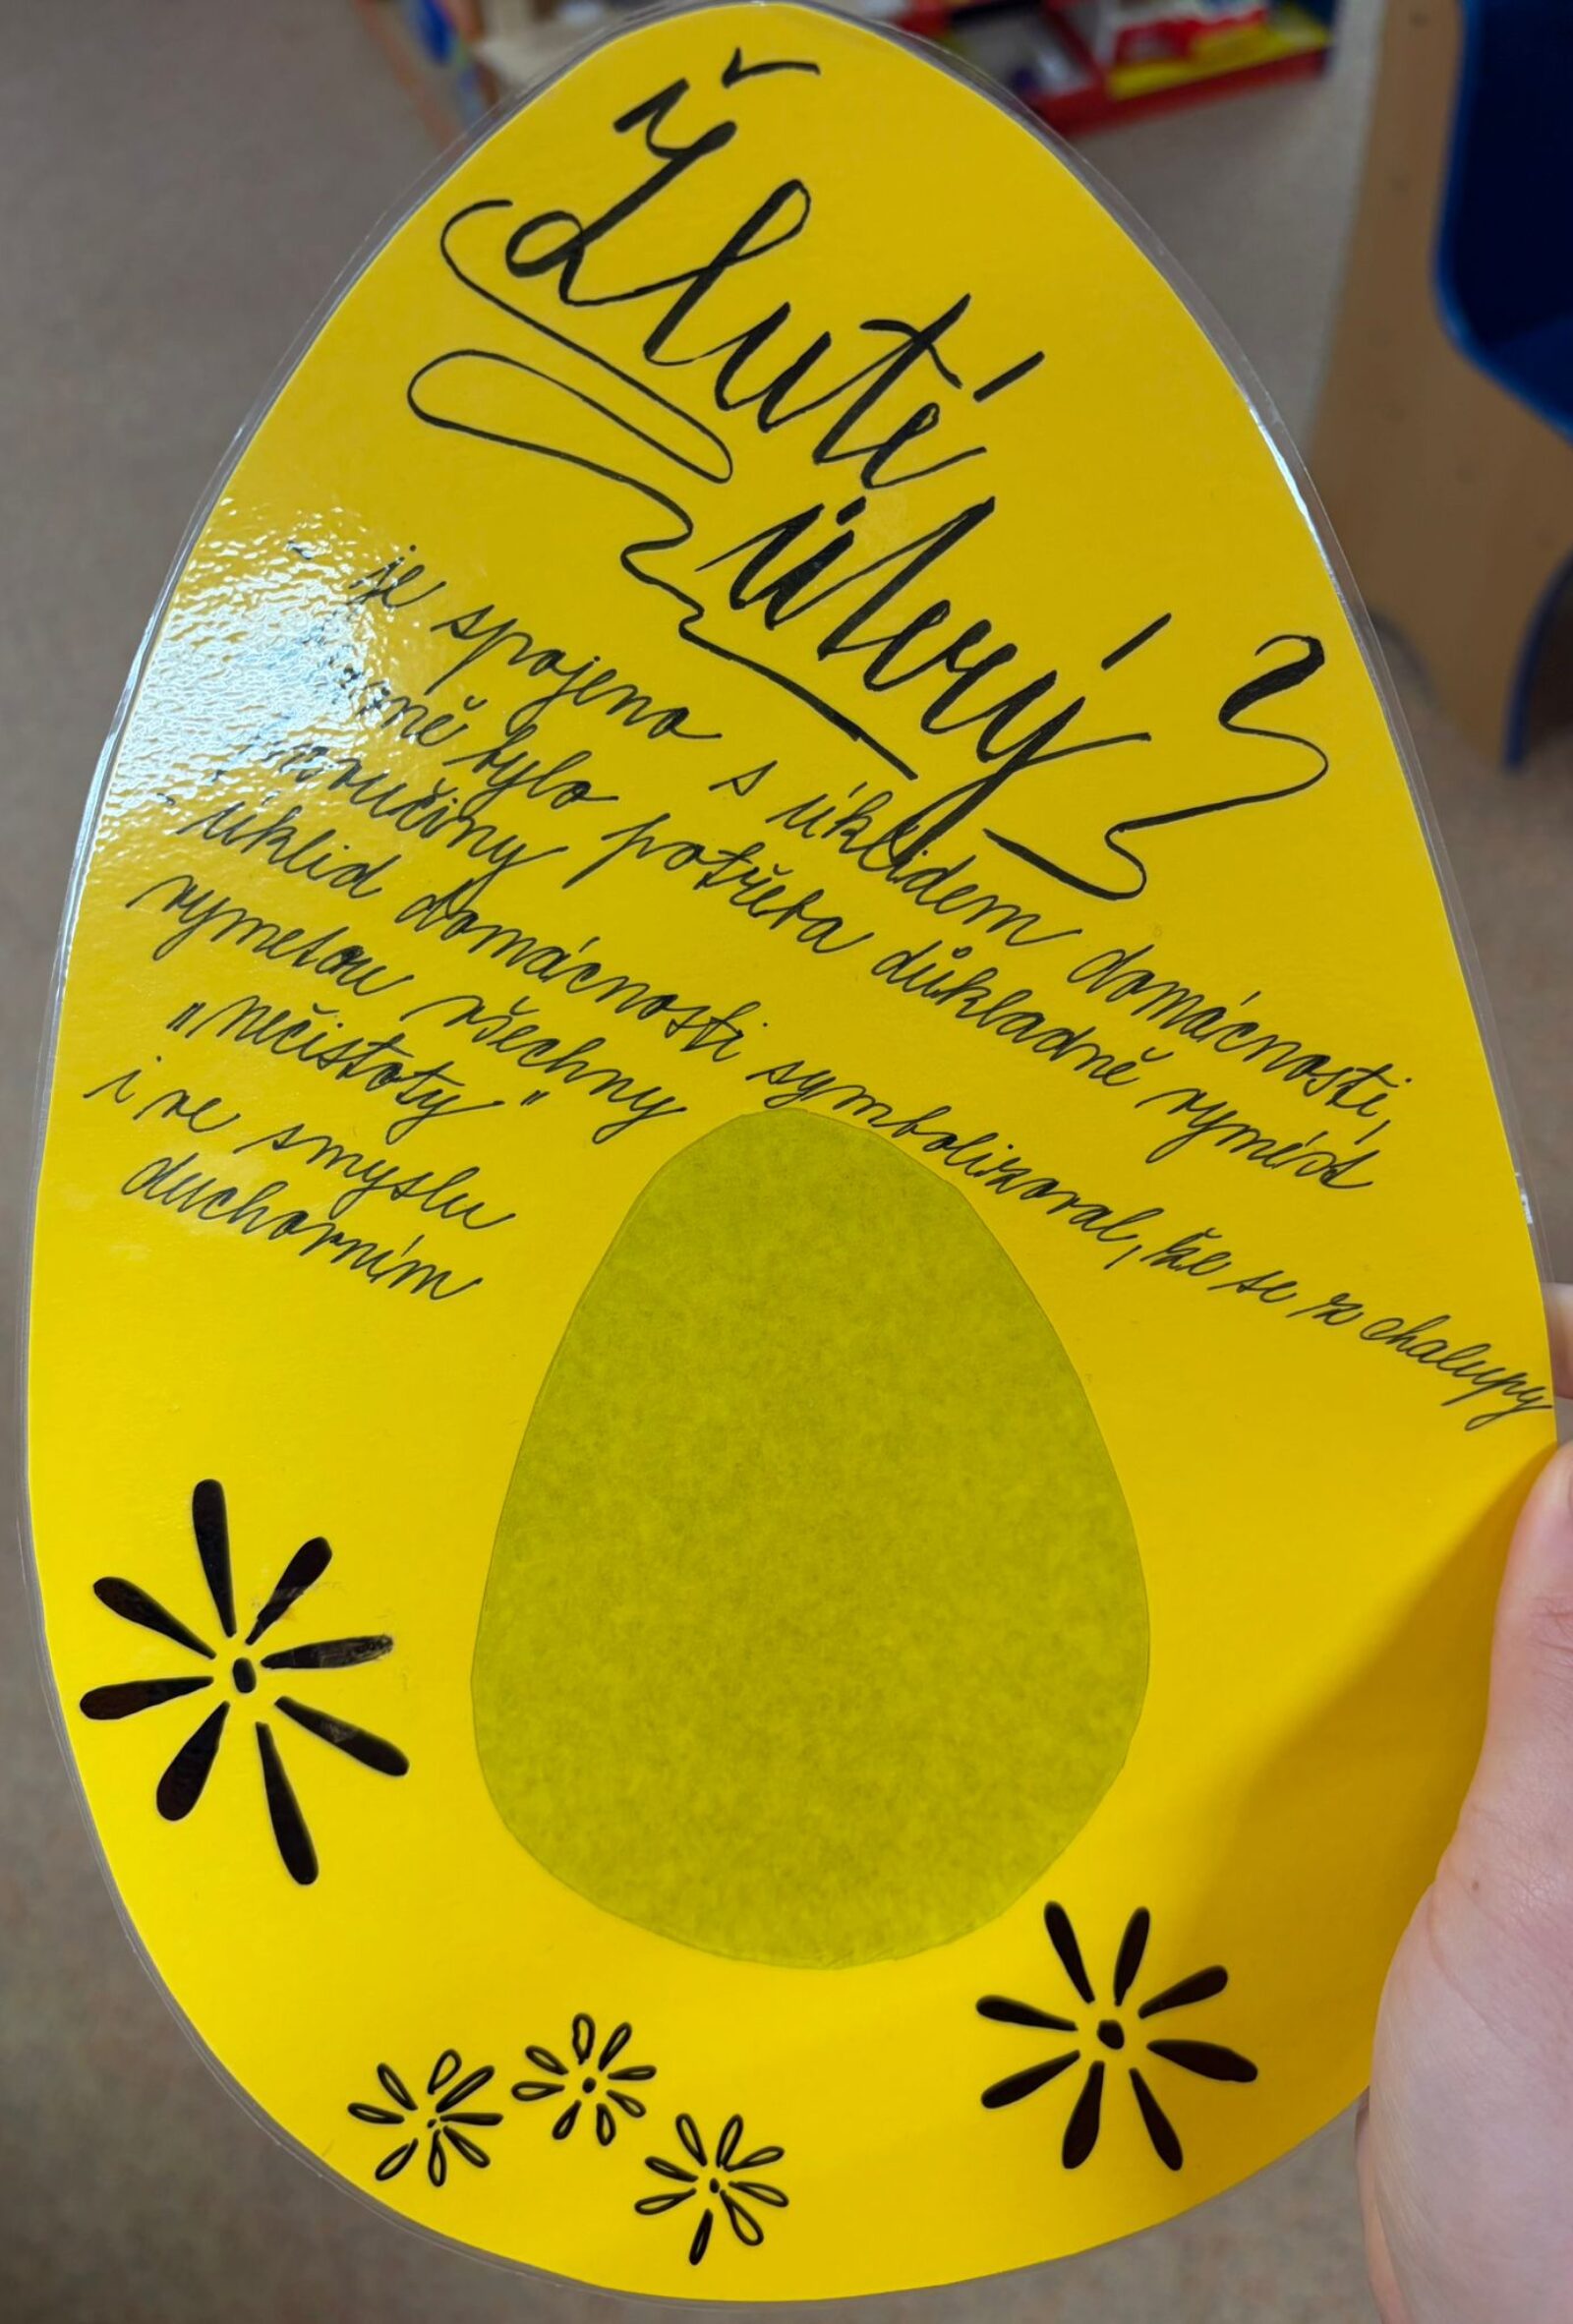 Žluté
úterý
- je spojeno s úklidem domácnosti,
bylo potřeba důkladně vymést
pavučiny
- úklid domácnosti symbolizoval, že se z chalupy
vymetou všechny
"nečistoty"
i ve smyslu
duchovním